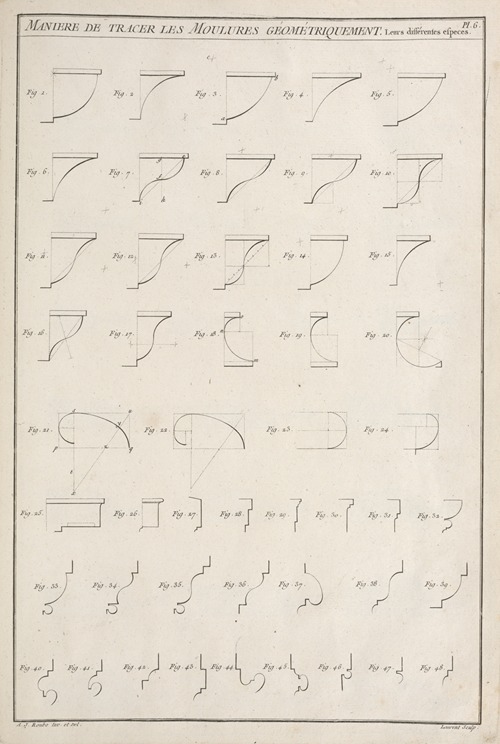 Pl. 6.
MANIERE DE TRACER LES MOULURES GÉOMÉTRIQUEMENT. Leurs différentes especes.
Fig. 1. Fig. 2. Fig. 3. Fig. 4. Fig. 5.
Fig. 6. Fig. 7. Fig. 8. Fig. 9. Fig. 10.
Fig. 11. Fig. 12. Fig. 13. Fig. 14. Fig. 15.
Fig. 16. Fig. 17. Fig. 18. Fig. 19. Fig. 20.
Fig. 21. Fig. 22. Fig. 23. Fig. 24.
Fig. 25. Fig. 26. Fig. 27. Fig. 28. Fig. 29. Fig. 30. Fig. 31. Fig. 32.
Fig. 33. Fig. 34. Fig. 35. Fig. 36. Fig. 37. Fig. 38. Fig. 39.
Fig. 40. Fig. 41. Fig. 42. Fig. 43. Fig. 44. Fig. 45. Fig. 46. Fig. 47. Fig. 48.
A. J. Roubo Inv. et del. Laurent Sculp.